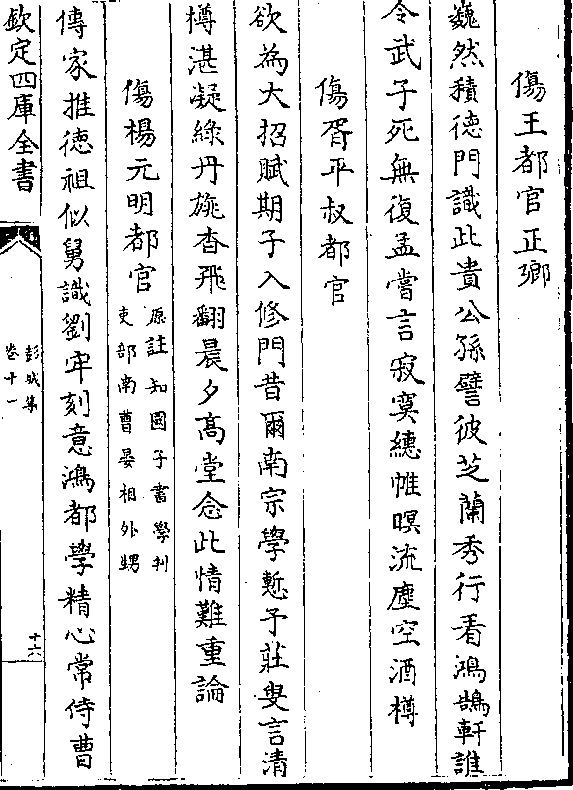 傷王都官正鄉
巍然積德門識此貴公孫譬彼芝蘭秀行看鴻鵠軒誰
令武子死無復孟嘗言寂寞繐帷暝流塵空酒樽
傷胥平叔都官
欲為大招賦期子入修門昔爾南宗學慙予莊叟言清
樽湛凝綠丹旐杳飛翻晨夕高堂念此情難重論
傷楊元明都官
原註知國子書學判
吏部南曹晏相外甥
傳家推德祖似舅識劉牢刻意鴻都學精心常侍曹
欽定四庫全書
彭城集
卷十一
十六